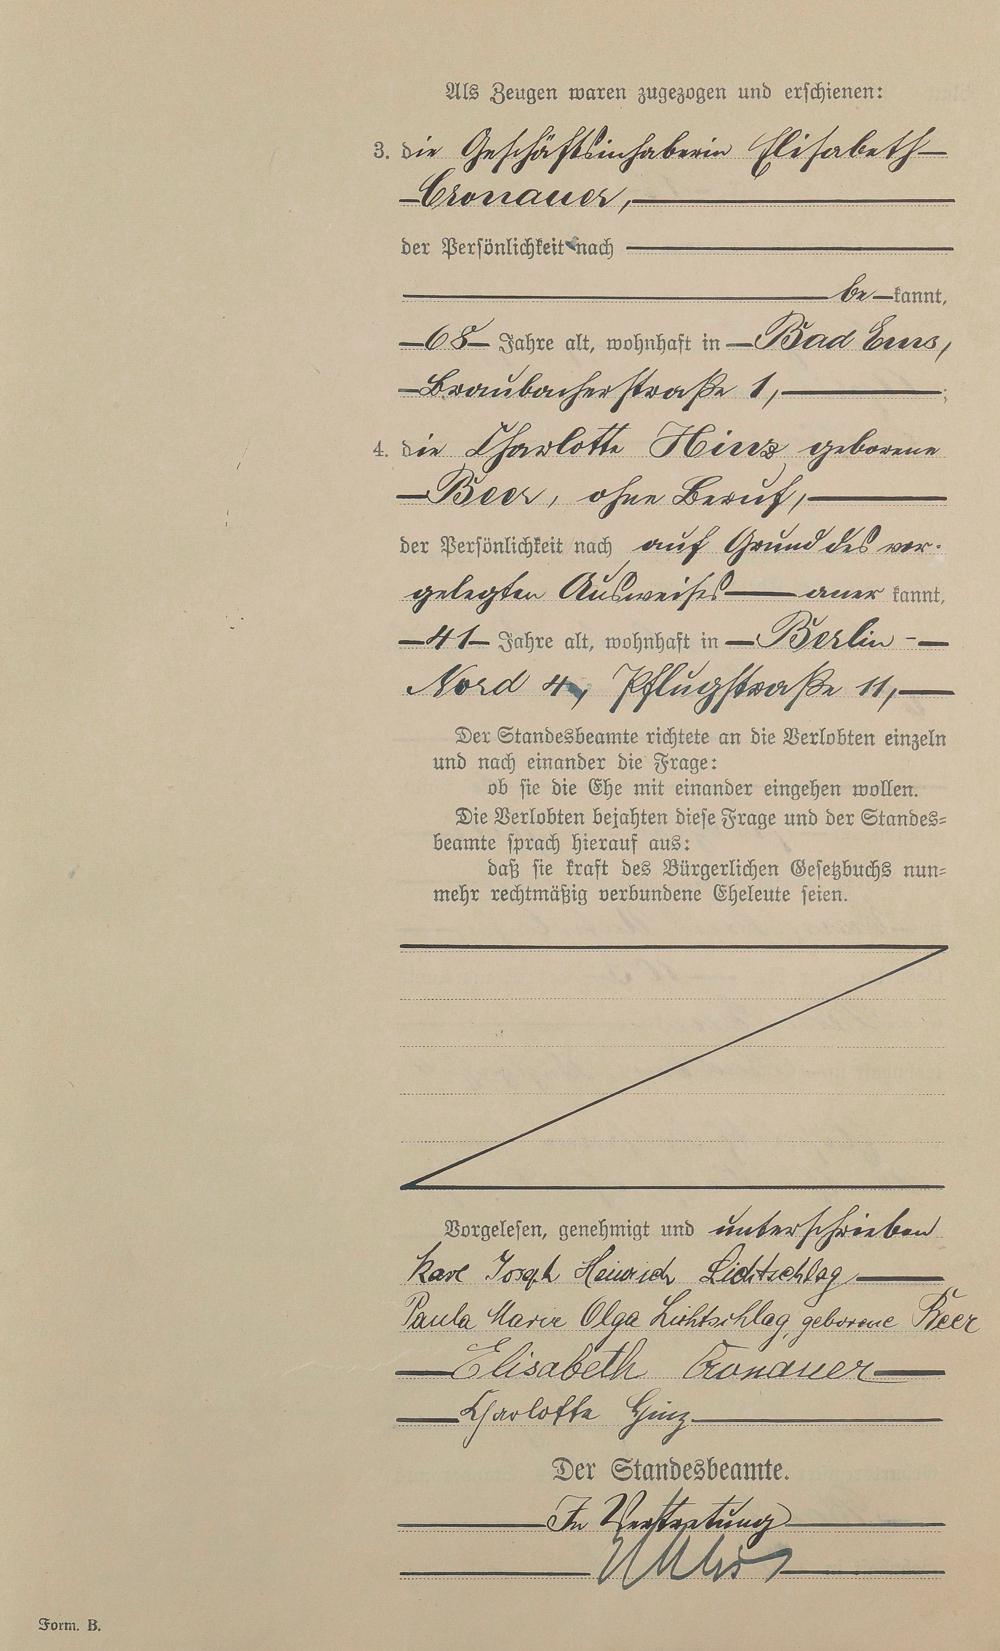 Als Zeugen waren zugezogen und erschienen:
3. die Geschäftsinhaberin Elisabeth
Cronauer,
der Persönlichkeit nach
be kannt,
68 Jahre alt, wohnhaft in Bad Ems,
Braubacherstraße 1, ;
4. die Charlotte Hinz geborene
Beer, ohne Beruf,
der Persönlichkeit nach auf Grund des vor-
gelegten Ausweises aner kannt,
41 Jahre alt, wohnhaft in Berlin -
Nord 4, Pflugstraße 11,
Der Standesbeamte richtete an die Verlobten einzeln
und nach einander die Frage:
ob sie die Ehe mit einander eingehen wollen.
Die Verlobten bejahten diese Frage und der Standes-
beamte sprach hierauf aus:
daß sie kraft des Bürgerlichen Gesetzbuchs nun-
mehr rechtmäßig verbundene Eheleute seien.
Vorgelesen, genehmigt und unterschrieben
Karl Joseph Heinrich Lichtschlag
Paula Marie Olga Lichtschlag, geborene Beer
Elisabeth Cronauer
Charlotte Hinz
Der Standesbeamte.
In Vertretung
Form. B.